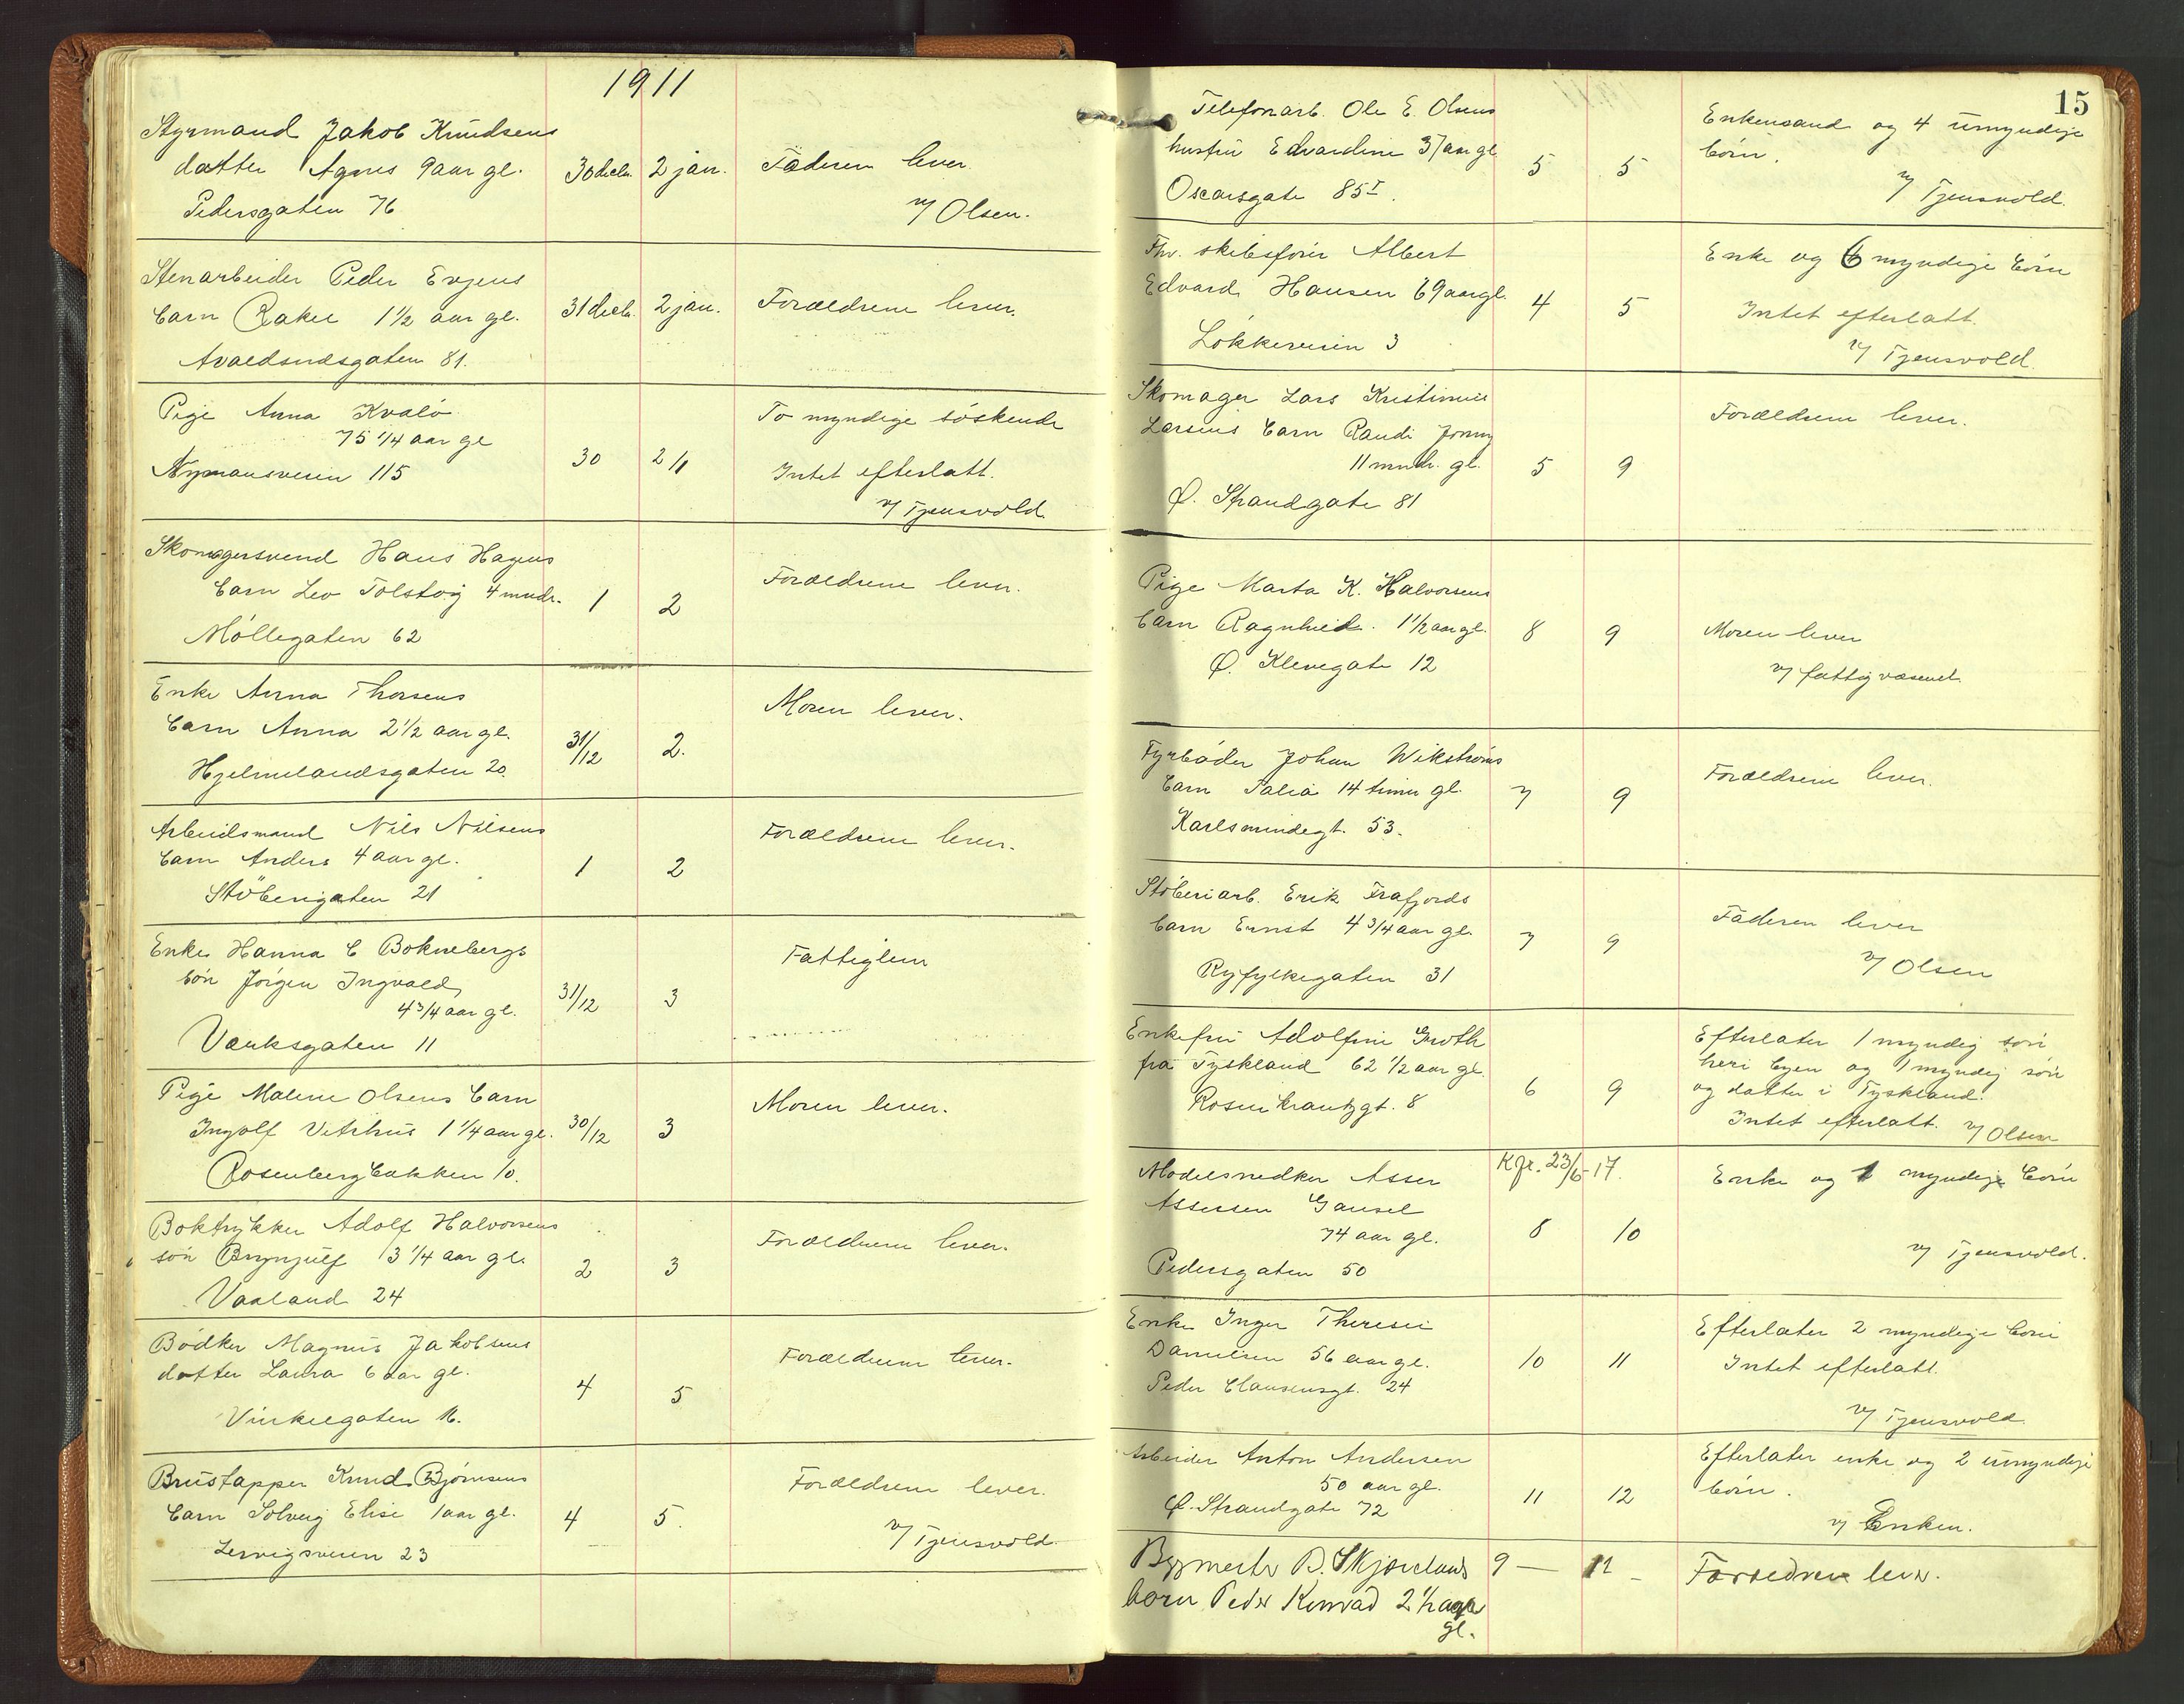 1911
Styrmand Jakob Knudsens
datter Agnes 9 aar gl. 30 decbr. 2 jan. Faderen lever.
Pedersgaten 76 v/ Olsen.
Stenarbeider Peder Evjens
barn Rakel 1 1/2 aar gl. 31 decbr. 2 jan. Forældrene lever.
Avaldsnesgaten 81.
Pige Anna Kvalö To myndige söskende
75 1/4 aar gl
Nymansveien 115 30 2/1 Intet efterlatt.
v/ Tjensvold.
Skomagersvend Hans Hagens
barn Leo Tolstoy 4 mndr. 1 2 Forældrene lever.
Möllegaten 62
Enke Anna Thorsens Moren lever.
barn Anna 2 1/2 aar gl. 31/12 2.
Hjelmelandsgaten 20.
Arbeidsmand Nils Nilsens Forældrene lever.
barn Anders 4 aar gl. 1 2
Stöberigaten 21
Enke Hanna C Boknebergs Fattiglem
sön Jörgen Ingvald,
4 3/4 aar gl. 31/12 3
Værksgaten 11
Pige Malene Olsens barn Moren lever.
Ingolf Vitshus 1 1/4 aar gl. 30/12 3
Rosenbergbakken 10.
Boktrykker Adolf Halvorsens Forældrene lever.
sön Brynjulf 13 1/4 aar gl. 2 3
Vaaland 24
Bödker Magnus Jakobsens Forældrene lever.
datter Laura 6 aar gl. 4 5
Vinkelgaten 16.
Brustapper Knud Bjørnsens Forældrene lever.
barn Solveig Elise 1 aar gl. 4 5.
Lervigsveien 23 v/ Tjensvold.
15
Telefonarb. Ole E. Olsens Enkemand og 4 umyndige
hustru Edvardine 37 aar gl 5 5 börn.
Oscarsgate 85 I. v/ Tjensvold.
Fhv. skibsförer Albert Enke og 6 myndige börn
Edvard Hansen 69 aar gl. 4 5 Intet efterlatt.
Lökkeveien 3 v/ Tjensvold.
Skomager Lars Kristinus Forældrene lever.
Larsens barn Randi Jonny
11 mndr. gl. 5 9
Ø. Strandgate 81
Pige Marta K. Halvorsens
barn Ragnhild. 1 1/2 aar gl. 8 9 Moren lever
Ø. Klevegate 12 v/ fattigvæsenet.
Fyrböder Johan Wikströms Forældrene lever.
barn Talia 14 timer gl. 7 9
Karlsmindegt. 53.
Stöberiarb. Erik Frafjords Faderen lever
barn Ernst 4 3/4 aar gl. 7 9
Ryfylkegaten 31 v/ Olsen
Enkefru Adolfine Groth Efterlater 1 myndig sön
fra Tyskland 62 1/2 aar gl. 6 9 her i byen og 1 myndig sön
Rosenkrantzgt. 8 og datter i Tyskland.
Intet efterlatt. v/ Olsen
Kgr. 23/6-17.
Modelsnedker Asser Enke og 1 myndige börn
Assersen Gausel
74 aar gl. 8 10 v/ Tjensvold.
Pedersgaten 50
Enke Inger Theresie Efterlater 2 myndige börn
Danielsen 56 aar gl. 10 11 Intet efterlatt.
Peder Clausensgt. 24 v/ Tjensvold.
Arbeider Anton Andersen Efterlater enke og 2 umyndige
50 aar gl. 11 12 börn.
Ø. Strandgate 72 v/ Enken.
B. Skjørelands 9 — 12 – Forældrene lever.
barn Peder Konrad 2 1/2 aar
gl.